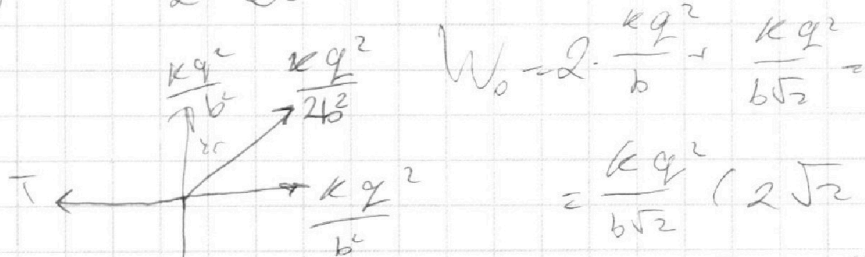 kq²/b² kq²/2b² W₀ = 2·kq²/b + kq²/b√2 =
T kq²/b² = kq²/b√2 (2√2